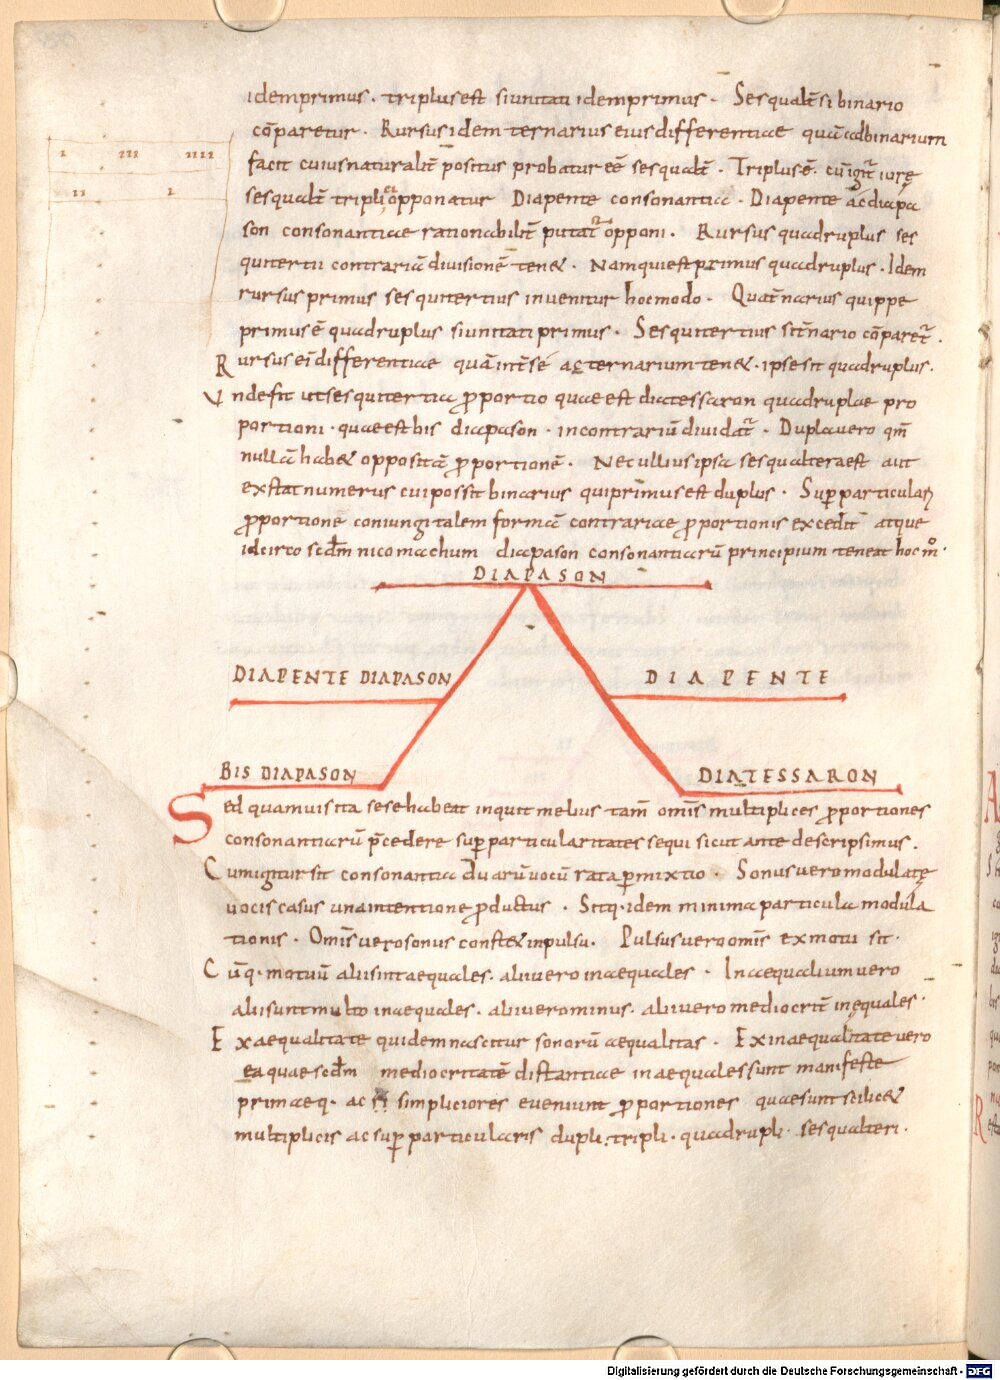 idemprimus. triplusest siunitati idemprimus. Sesqualt̄ si binario
cōparetur. Rursus idem ternarius eius differentiae quā ad binarium
facit cuius naturalit̄ positus probatur eē sesqualt̄. Triplus ē. cū igit̄ iurę
sesqualt̄ tripli et opponatur Diapente consonantia. Diapente ac diapa
son consonantiae rationabilit̄ putat̄ opponi. Rursus quadruplus ses
quitertii contrariā divisionē ten&. Namqui est primus quadruplus. Idem
rursus primus sesquitertius invenitur hocmodo. Quat̄narius quippe
primus ē quadruplus siunitati primus. Sesquitertius sit̄nario cōparet̄.
Rursus ei differentiae quā int̄ sé ac ternarium ten&. ipse sit quadruplus.
Unde fit ut sesquitertia p̄portio quae est diatessaron quadruplae pro
portioni. quae est bis diapason. in contrariū dividat̄. Dupla vero qm̄
nullā hab& oppositā p̄portionē. Nec ullius ipsa sesqualtera est aut
exstat numerus cui possit binarius qui primus est duplus. Sup̄particulari
p̄portione coniungi talem formā contrariae p̄portionis excedit atque
idcirco scdm̄ nicomachum diapason consonantiarū principium teneat hoc m̊.
DIAPASON
I III IIII
II I
DIAPENTE DIAPASON DIAPENTE
BIS DIAPASON DIATESSARON
Sed quamvis ita sese habeat inquit melius tam̄ om̄s multiplices p̄portiones
consonantiarū p̄cedere sup̄particularitates sequi sicut ante descripsimus.
Cum igitur sit consonantia duarū vocū rata p̄mixtio. Sonus vero modulatę
vocis casus una intentione p̄ductus. Sitq· idem minima particula modula
tionis. Om̄is vero sonus const& inpulsu. Pulsus vero omīs ex motu sit.
Cūq· motuū alii sint aequales. alii vero inaequales. Inaequalium vero
alii sunt multo inaequales. alii vero minus. alii vero mediocrit̄ inęquales.
Ex aequalitate quidem nascitur sonorū aequalitas. Ex inaequalitate vero
ea quae scdm̄ mediocritatē distantiae inaequales sunt manifeste
primaeq· ac simpliciores eveniunt p̄portiones quae sunt scilic&
multiplicis ac sup̄particularis dupli. tripli. quadrupli. sesqualteri.
Digitalisierung gefördert durch die Deutsche Forschungsgemeinschaft - DFG